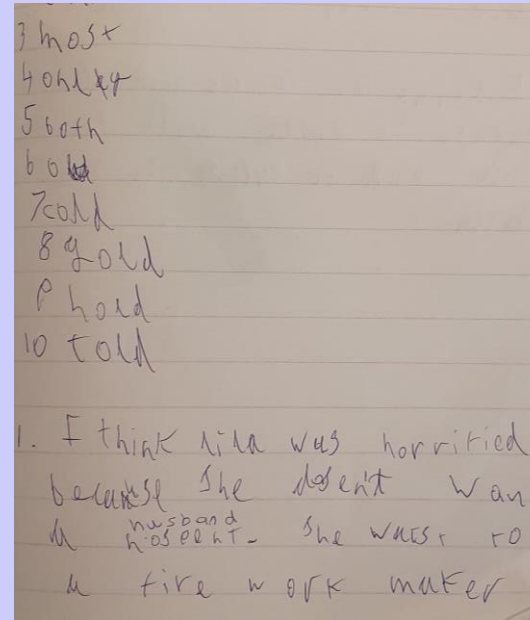 3 most
4 only
5 both
6 old
7 cold
8 gold
9 hold
10 told
1. I think lila was horrified
because she dosen't wan
a husband
she
a fire work maker